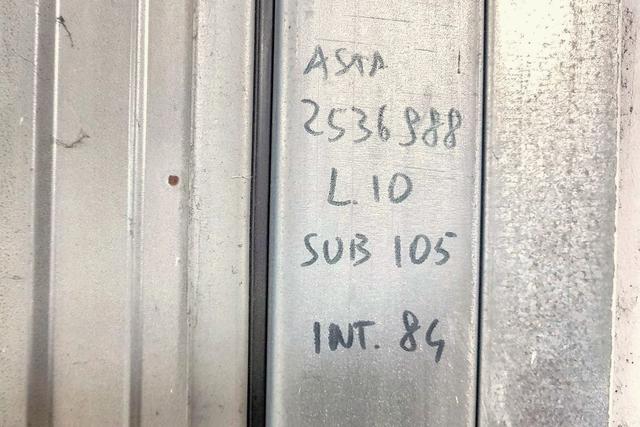 ASTA
2536988
L. 10
SUB 105
INT. 84